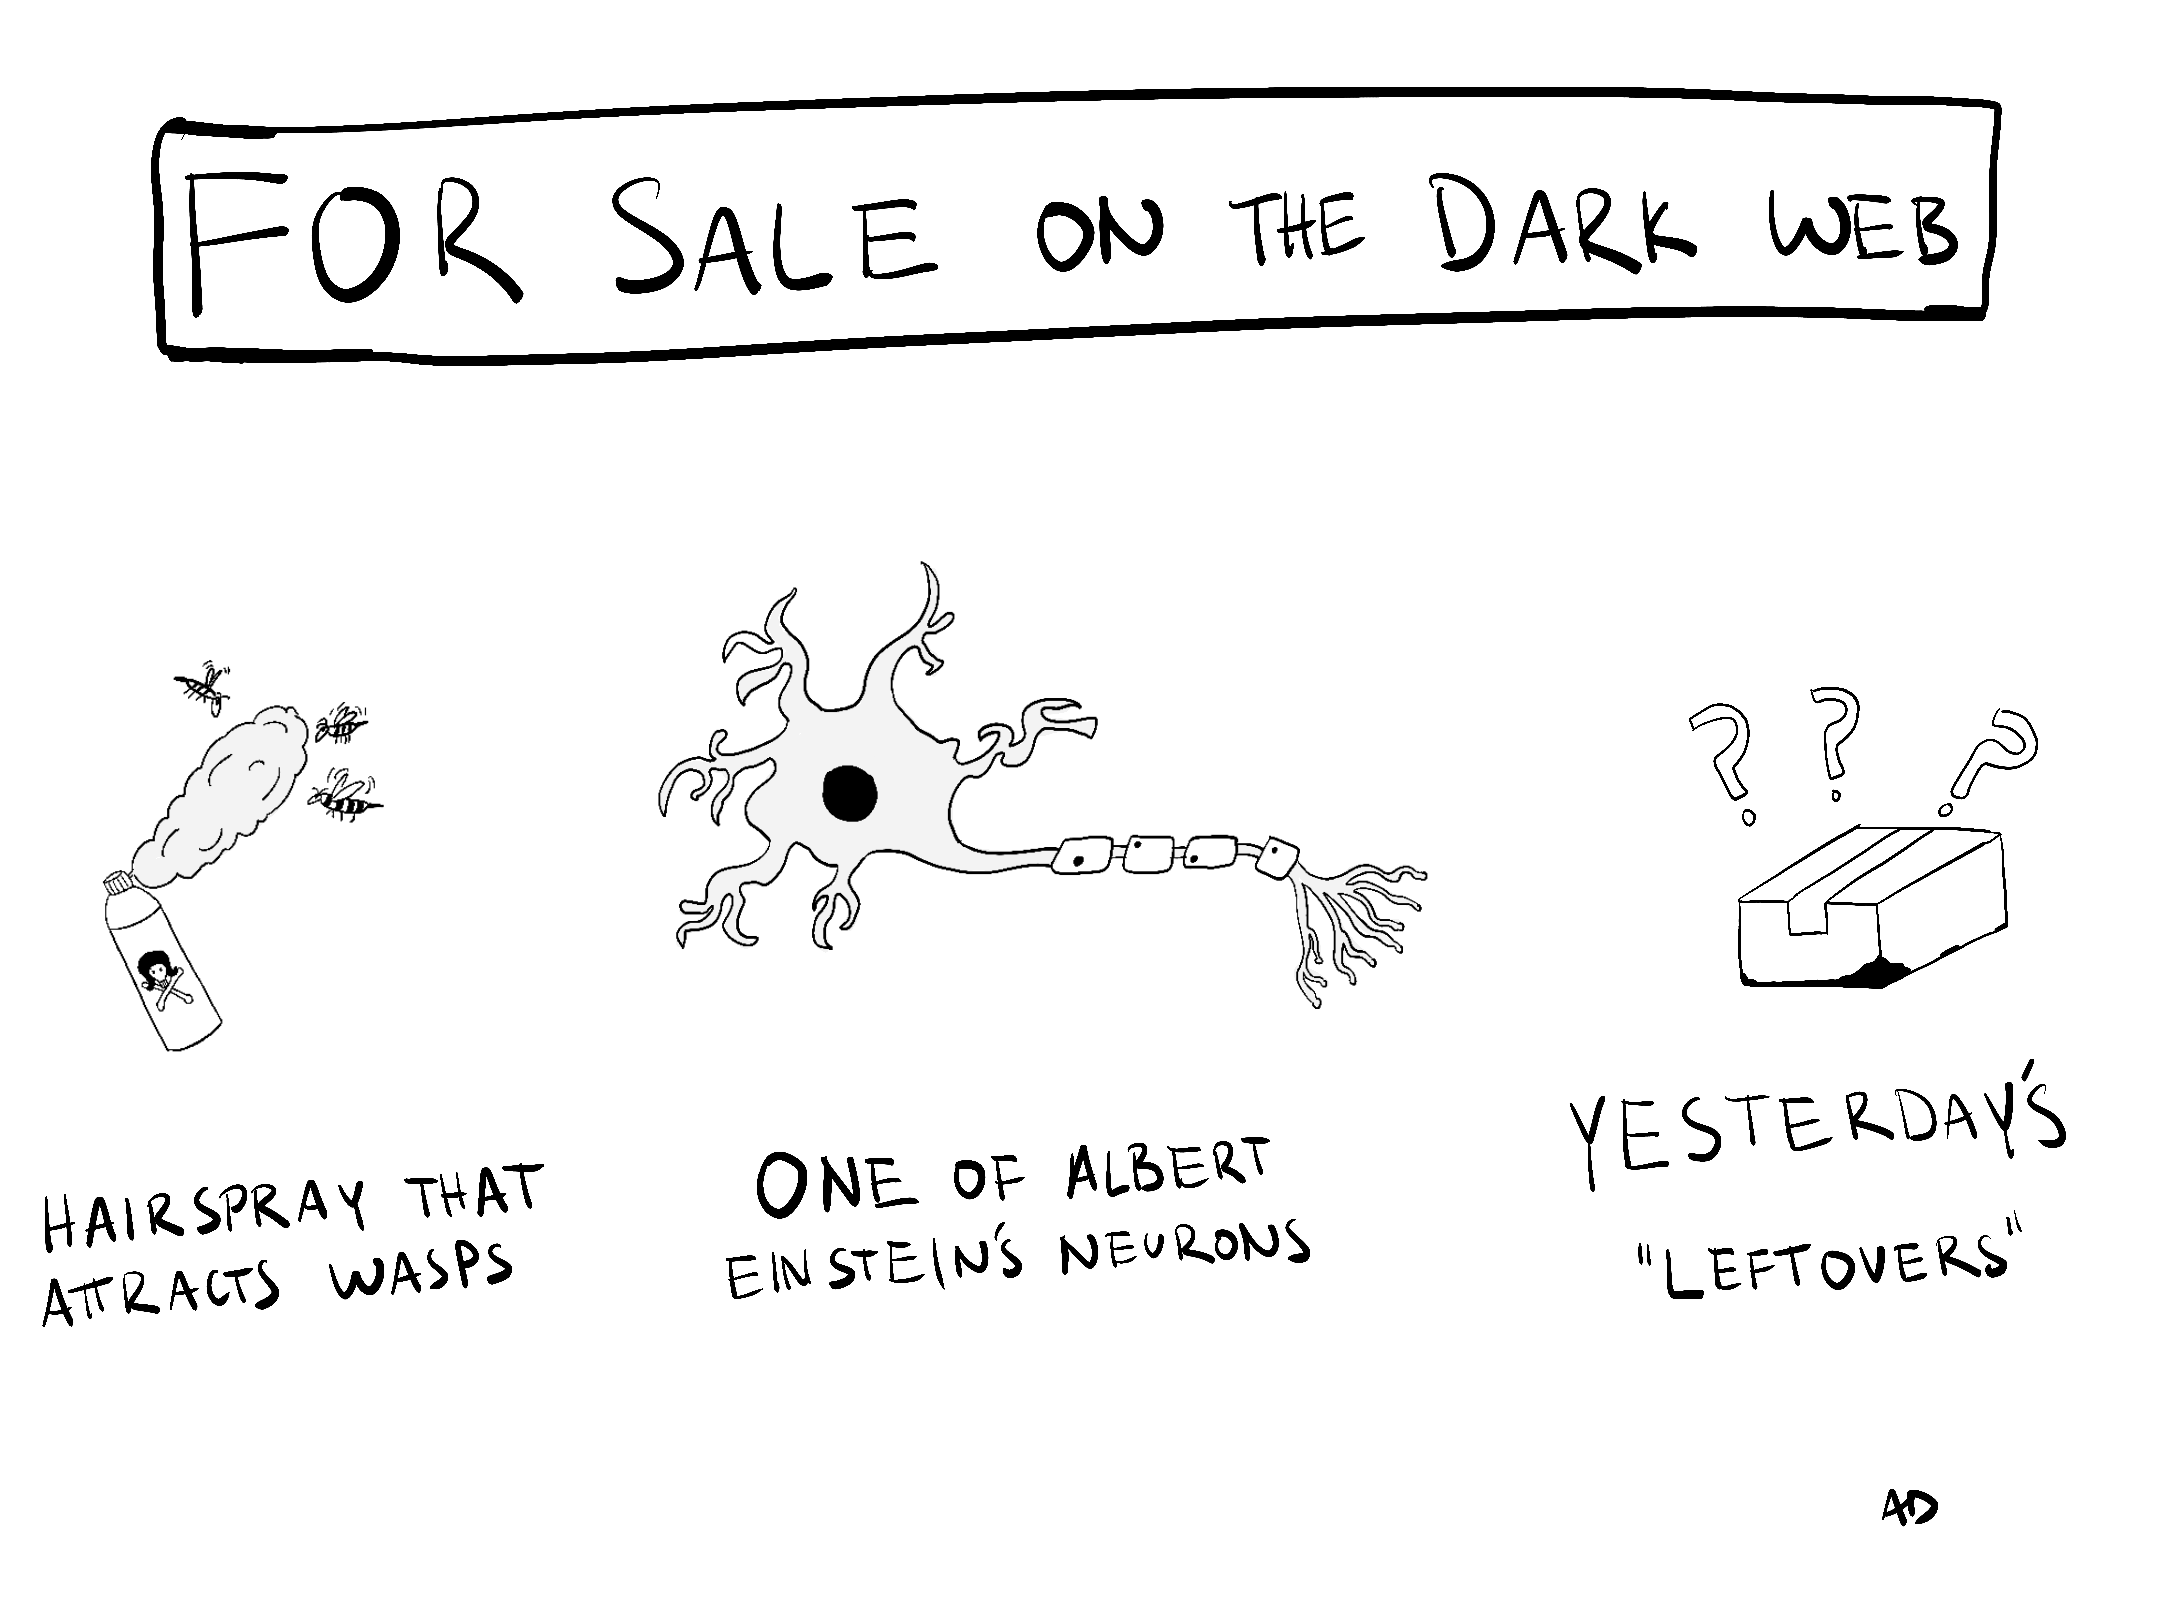 FOR SALE ON THE DARK WEB
HAIRSPRAY THAT
ATTRACTS WASPS
ONE OF ALBERT
EINSTEIN'S NEURONS
? ? ?
YESTERDAY'S
"LEFTOVERS"
AD